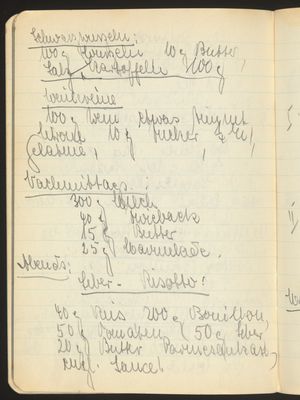 Schwarzwurzeln:
100g Wurzeln 10g Butter,
Salz, Kartoffeln 200g
Weincrème
100g Wein etwas
10g Zucker 1 Ei,
Gelatine,
Nachmittags:
300g Milch
40g Zwieback
15g Butter
25g Marmelade.
Abends:
Leber-Risotto:
40g Reis 200g Bouillon,
50g Tomaten (50g Leber
20g Butter Parmesankäse
Sauce